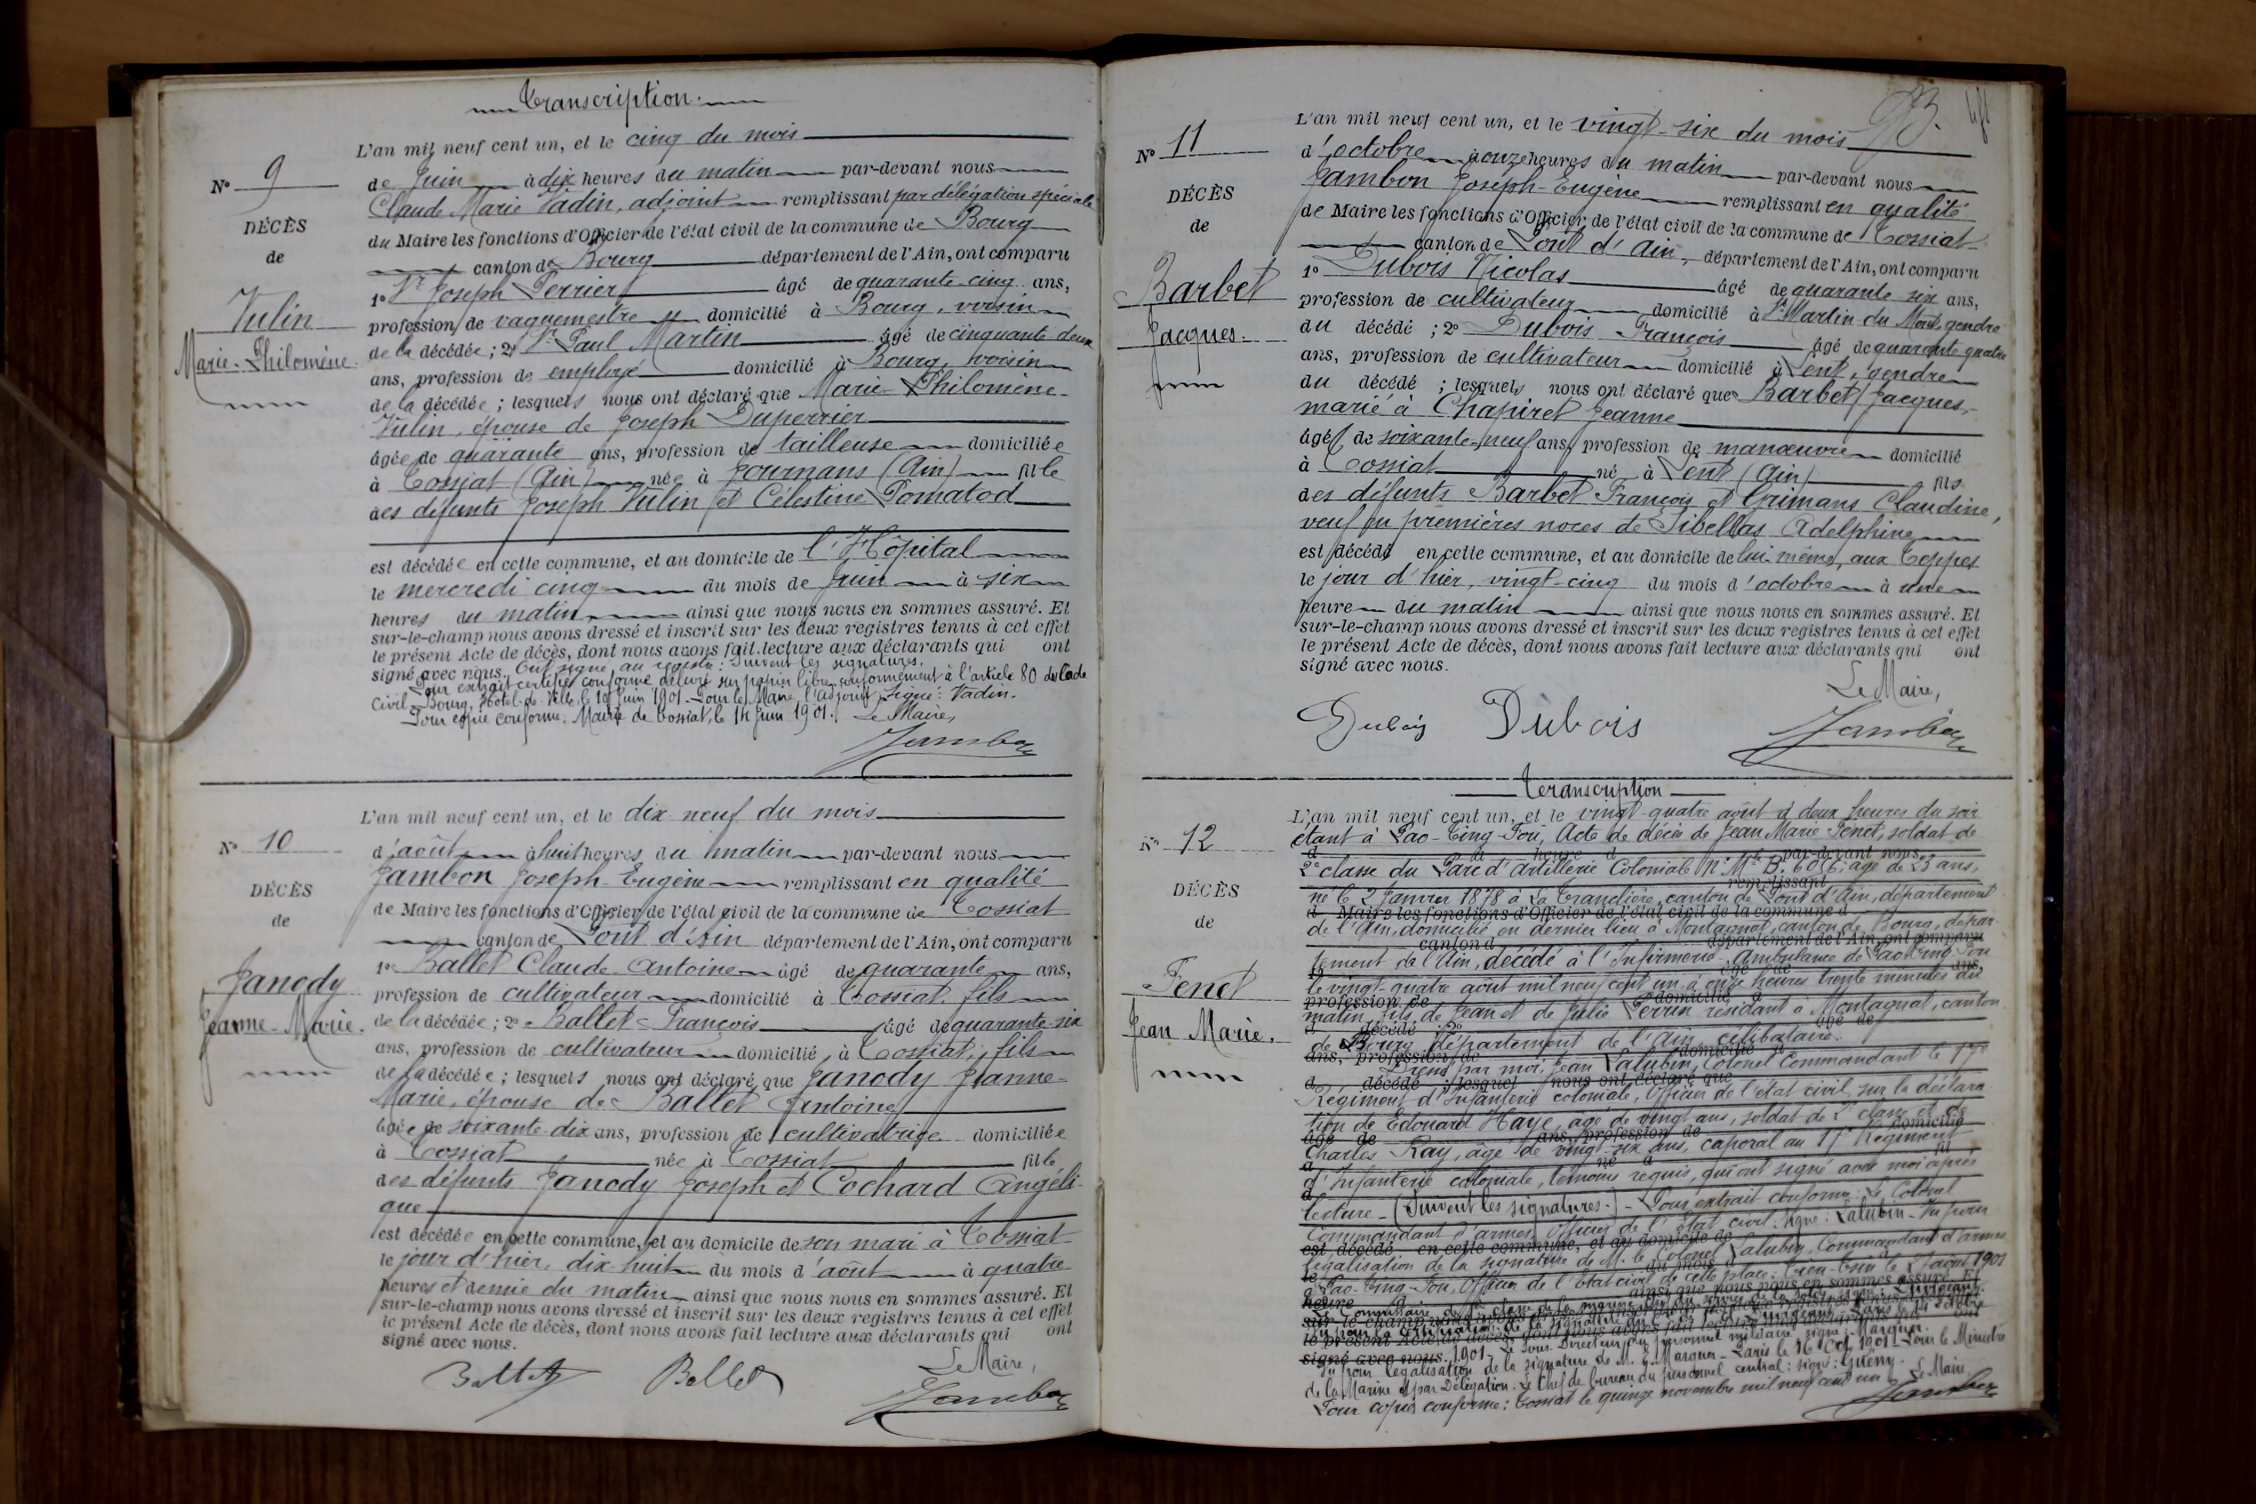 Transcription.
N° 9
DÉCÈS
de
Vulin
Marie-Philomène.
L'an mil neuf cent un, et le cinq du mois
de Juin à dix heures du matin par-devant nous
Claude Marie Vadin, adjoint remplissant par délégation spéciale
du Maire les fonctions d'Officier de l'état civil de la commune de Bourg
canton de Bourg département de l'Ain, ont comparu
1° Joseph Perrier âgé de quarante-cinq ans,
profession de vaguemestre domicilié à Bourg, voisin
de la décédée ; 2° Paul Martin âgé de cinquante deux
ans, profession de employé domicilié à Bourg, voisin
de la décédée ; lesquels nous ont déclaré que Marie-Philomène
Vulin, épouse de Joseph Duperrier
âgée de quarante ans, profession de tailleuse domiciliée
à Tossiat (Ain) née à Journans (Ain) fille
des défunts Joseph Vulin et Célestine Pomatod
est décédée en cette commune, et au domicile de l'Hôpital
le mercredi cinq du mois de Juin à six
heures du matin ainsi que nous nous en sommes assuré. Et
sur-le-champ nous avons dressé et inscrit sur les deux registres tenus à cet effet
le présent Acte de décès, dont nous avons fait lecture aux déclarants qui ont
signé avec nous. Ont signé au registre : Suivent les signatures.
Pour extrait certifié conforme délivré sur papier libre conformément à l'article 80 du Code
Civil. Bourg, Hôtel-de-Ville, le Juin 1901. Pour le Maire, l'adjoint, Signé : Vadin.
Pour copie conforme. Mairie de Tossiat, le 14 Juin 1901. Le Maire,
Jambon
N° 10
DÉCÈS
de
Janody
Jeanne-Marie.
L'an mil neuf cent un, et le dix neuf du mois
d'août à huit heures du matin par-devant nous
Jambon Joseph-Eugène remplissant en qualité
de Maire les fonctions d'Officier de l'état civil de la commune de Tossiat
canton de Pont d'Ain département de l'Ain, ont comparu
1° Ballet Claude-Antoine âgé de quarante ans,
profession de cultivateur domicilié à Tossiat, fils
de la décédée ; 2° Ballet François âgé de quarante-six
ans, profession de cultivateur domicilié à Tossiat, fils
de la décédée ; lesquels nous ont déclaré que Janody Jeanne-
Marie, épouse de Ballet Antoine
âgée de soixante-dix ans, profession de cultivatrice domiciliée
à Tossiat née à Tossiat fille
des défunts Janody Joseph et Cochard Angéli-
que
est décédée en cette commune, et au domicile de son mari à Tossiat
le jour d'hier, dix huit du mois d'août à quatre
heures et demie du matin ainsi que nous nous en sommes assuré. Et
sur-le-champ nous avons dressé et inscrit sur les deux registres tenus à cet effet
le présent Acte de décès, dont nous avons fait lecture aux déclarants qui ont
signé avec nous.
Le Maire,
Ballet Ballet Jambon
N° 11
DÉCÈS
de
Barbet
Jacques.
L'an mil neuf cent un, et le vingt-six du mois
d'octobre à onze heures du matin par-devant nous
Jambon Joseph-Eugène remplissant en qualité
de Maire les fonctions d'Officier de l'état civil de la commune de Tossiat
canton de Pont d'Ain, département de l'Ain, ont comparu
1° Dubois Nicolas âgé de quarante six ans,
profession de cultivateur domicilié à St Martin du Mont, gendre
du décédé ; 2° Dubois François âgé de quarante quatre
ans, profession de cultivateur domicilié à Lent, gendre
du décédé ; lesquels nous ont déclaré que Barbet Jacques,
marié à Chapiret Jeanne
âgé de soixante-neuf ans, profession de manœuvre domicilié
à Tossiat né à Lent (Ain) fils
des défunts Barbet François et Claudine,
veuf en premières noces de Sibellas Adelphine
est décédé en cette commune, et au domicile de lui-même, aux Teppes
le jour d'hier, vingt-cinq du mois d'octobre à une
heure du matin ainsi que nous nous en sommes assuré. Et
sur-le-champ nous avons dressé et inscrit sur les deux registres tenus à cet effet
le présent Acte de décès, dont nous avons fait lecture aux déclarants qui ont
signé avec nous.
Le Maire,
Dubois Dubois Jambon
Transcription
N° 12
DÉCÈS
de
Penet
Jean Marie.
L'an mil neuf cent un, et le vingt-quatre août à deux heures du soir
étant à Pao-Ting-Fou, Acte de décès de Jean Marie Penet, soldat de
2e classe du Parc d'Artillerie Coloniale N° Mle B. 6016, âgé de 23 ans,
né le 2 Janvier 1878 à La Tranclière, canton de Pont d'Ain, département
de l'Ain, domicilié en dernier lieu à Montagnat, canton de Bourg, dépar-
tement de l'Ain, décédé à l'Infirmerie-Ambulance de Pao-Ting-Fou
le vingt-quatre août mil neuf cent un, à onze heures trente minutes du
matin, fils de Jean et de Julie Perrin résidant à Montagnat, canton
de Bourg, département de l'Ain, célibataire.
Dressé par moi, Jean Lalubin, Colonel Commandant le 17e
Régiment d'Infanterie coloniale, Officier de l'état civil, sur la déclara-
tion de Edouard Haye, âgé de vingt ans, soldat de 2e classe et de
Charles Ray, âgé de vingt-six ans, caporal au 17e Régiment
d'Infanterie coloniale, témoins requis, qui ont signé avec moi après
lecture. (Suivent les signatures.) - Pour extrait conforme : Le Colonel
Commandant d'armes, Officier de l'état civil. Signé : Lalubin - Vu pour
légalisation de la signature de M. le Colonel Lalubin, Commandant d'armes
à Pao-Ting-Fou, Officier de l'Etat civil de cette place. Tien-Tsin le août 1901
Le Commissaire de 1re classe de la marine
1901 - Le Sous-Directeur du personnel militaire, signé : Margue.
Vu pour légalisation de la signature de M. Margue - Paris le 16 Oct. 1901 - Pour le Ministre
de la Marine et par Délégation. Le Chef de bureau du personnel central : signé :
Pour copie conforme : Tossiat le quinze novembre mil neuf cent un. Le Maire
Jambon